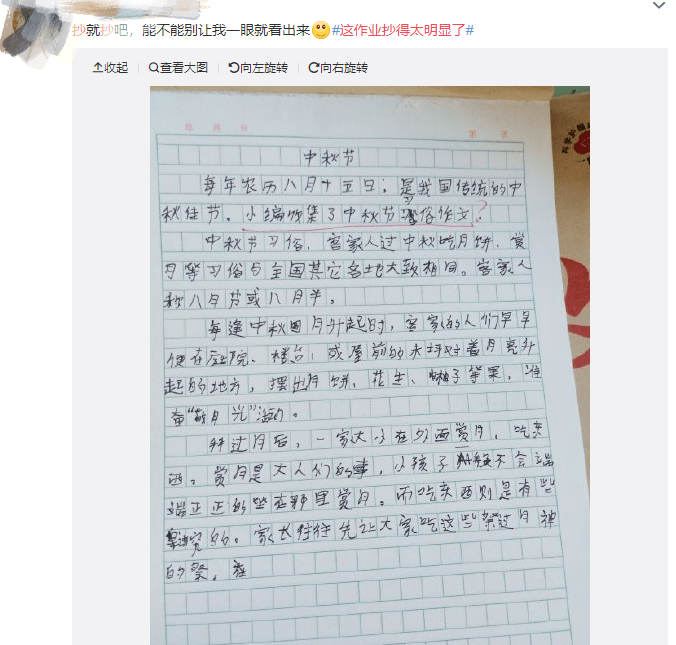 抄就抄吧，能不能别让我一眼就看出来#这作业抄得太明显了#
收起 查看大图 向左旋转 向右旋转
中秋节
每年农历八月十五日，是我国传统的中
秋佳节。小编收集了中秋节习俗作文？
中秋节习俗，客家人过中秋吃月饼，赏
月等习俗与全国其它各地大致相同。客家人
称八月节或八月半。
每逢中秋圆月升起时，客家的人们早早
便在庭院、楼台，或屋前的禾坪对着月亮升
起的地方，摆出月饼、花生、柚子等果，准
备“敬月光”活动。
拜过月后，一家大小在外面赏月，吃东
西。赏月是大人们的事，小孩子 不会端
端正正的坐在那里赏月。而吃东西则是有些
讲究的。家长往往先让大家吃这些祭过月神
的祭，在